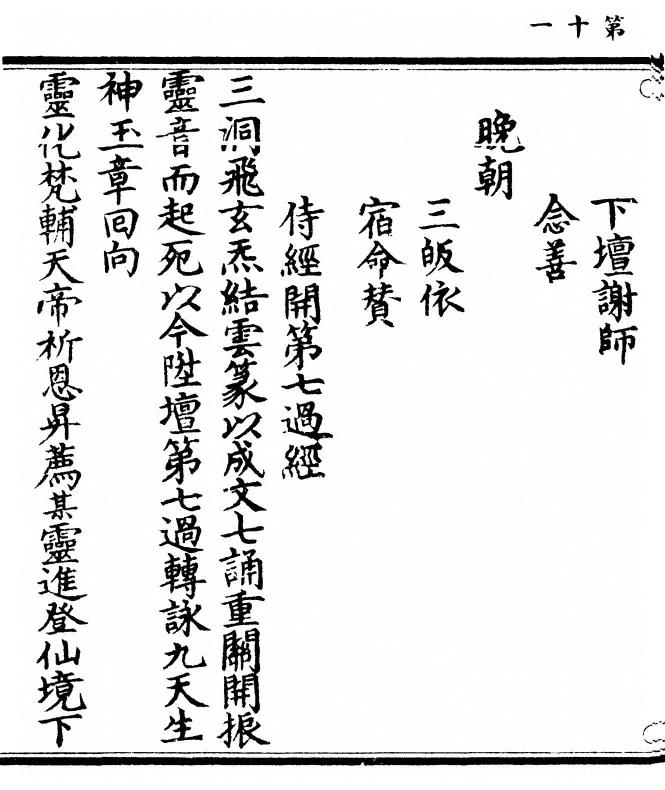 第十一
下壇謝師
念善
晚朝
三皈依
宿命贊
侍經開第七過經
三洞飛玄炁結雲篆以成文七誦重關開振
靈音而起死以今陞壇第七過轉詠九天生
神玉章囬向
靈化梵輔天帝祈恩昇薦某靈進登仙境下